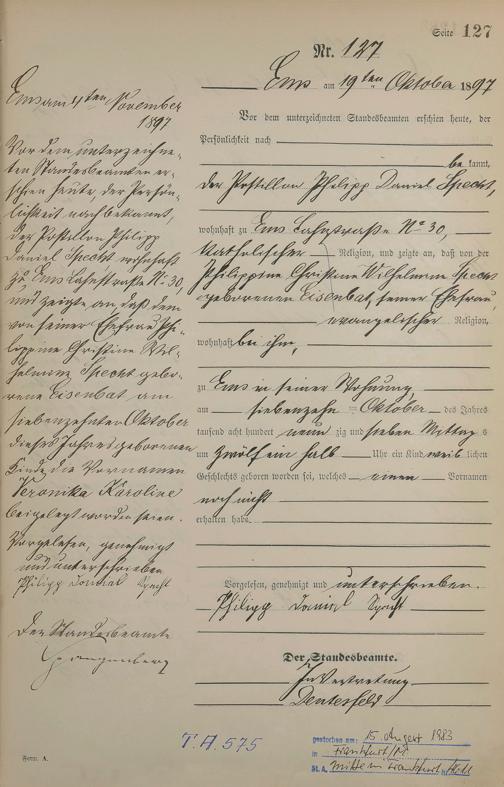 Seite 127
Nr. 127
Ems am 19ten Oktober 1897
Vor dem unterzeichneten Standesbeamten erschien heute, der
Persönlichkeit nach
be kannt,
der Postillon Philipp Daniel Specht,
wohnhaft zu Ems Lahnstraße No 30,
katholischer Religion, und zeigte an, daß von der
Philippine Christine Wilhelmine Specht
geborenen Eisenbat, seiner Ehefrau,
evangelischer Religion,
wohnhaft bei ihm,
zu Ems in seiner Wohnung
am siebenzehn ten Oktober des Jahres
tausend acht hundert neun zig und sieben Mittag s
um zwölf ein halb Uhr ein Kind weib lichen
Geschlechts geboren worden sei, welches einen Vornamen
noch nicht
erhalten habe.
Vorgelesen, genehmigt und unterschrieben.
Philipp Daniel Specht
Der Standesbeamte.
In Vertretung
Ems am 4ten November
1897
Vor dem unterzeichne-
ten Standesbeamten er-
schien heute, der Persön-
lichkeit nach bekannt,
der Postillon Philipp
Daniel Specht wohnhaft
zu Ems Lahnstraße No 30,
und zeigte an, daß dem
von seiner Ehefrau Phi-
lippine Christine Wil-
helmine Specht gebo-
rene Eisenbat am
siebenzehnten Oktober
dieses Jahres geborenen
Kinde die Vornamen
Veronika Karoline
beigelegt worden seien.
Vorgelesen, genehmigt
und unterschrieben
Philipp Daniel Specht
Der Standesbeamte
T.A. 575
gestorben am: 15. August 1983
in Frankfurt/M.
St.A. Mitte in Frankfurt
Form. A.